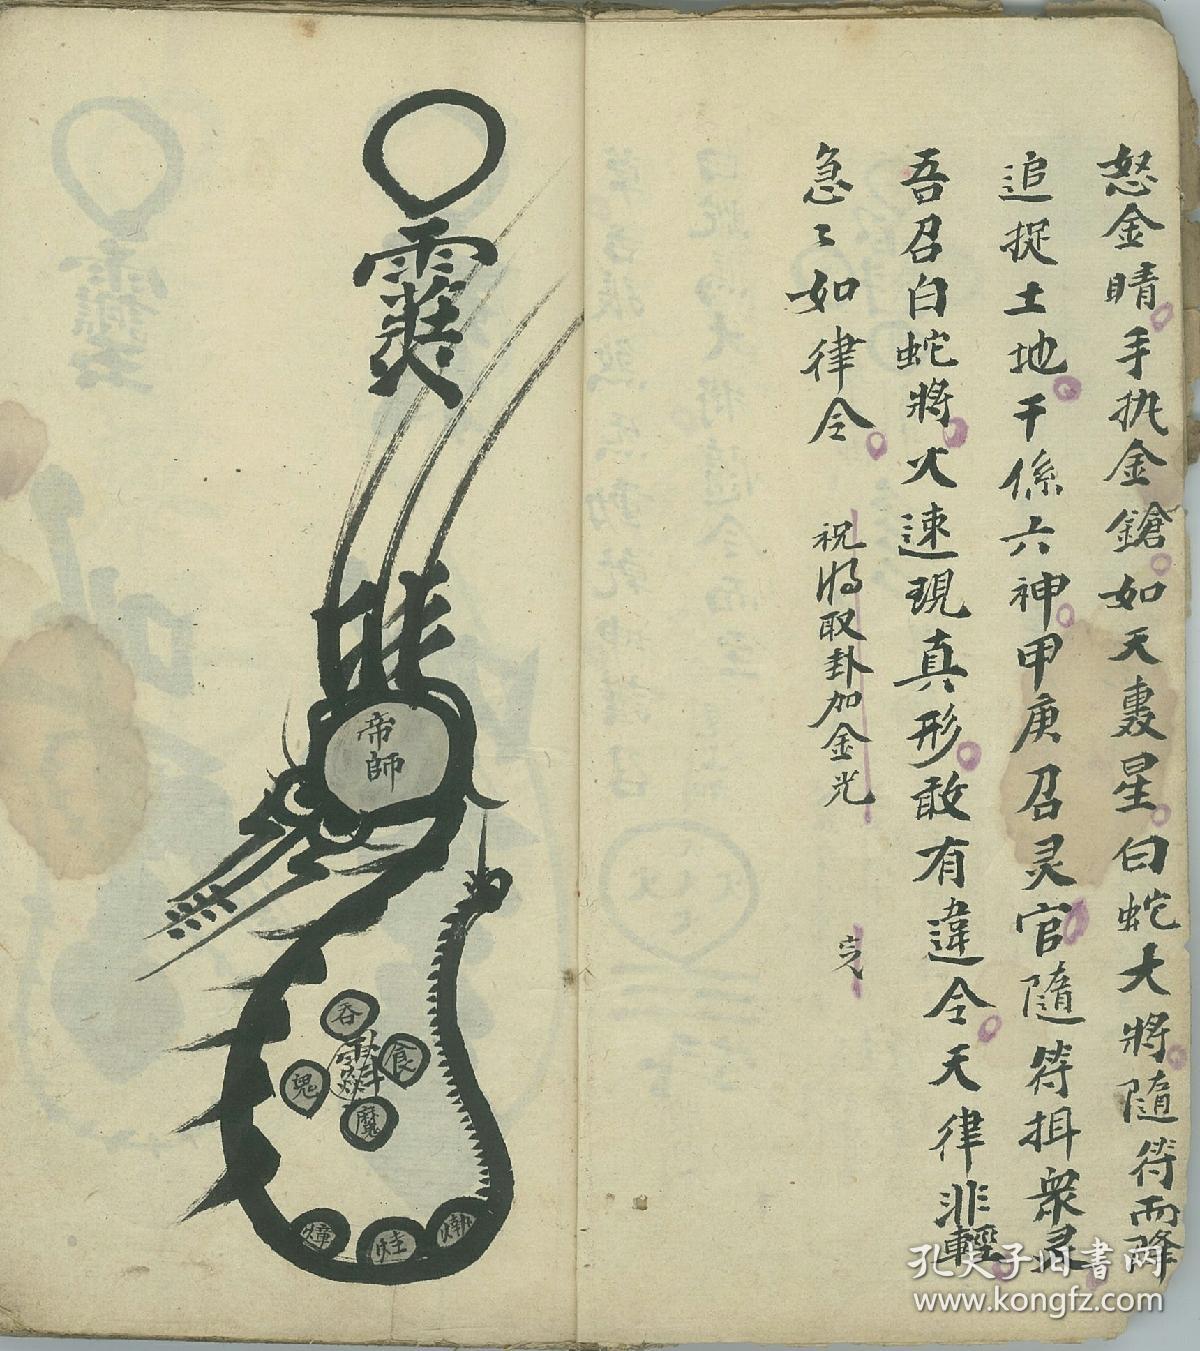 怒金睛手执金鎗如天轰星白蛇大將隨符而降
追捉土地干係六神甲庚召灵官隨符揖衆灵
吾召白蛇將火速現真形敢有違令天律非輕
急々如律令 祝將取卦加金光 完
帝師
吞
食
鬼
魔
孔夫子旧书网
www.kongfz.com